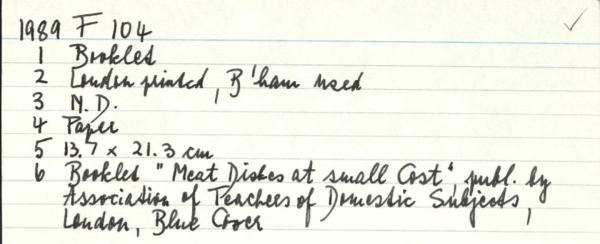 1989 F 104
1 Booklet
2 London printed, B'ham used
3 N.D.
4 Paper
5 13.7 x 21.3 cm
6 Booklet "Meat Dishes at small Cost", publ. by
Association of Teachers of Domestic Subjects,
London, Blue Cover